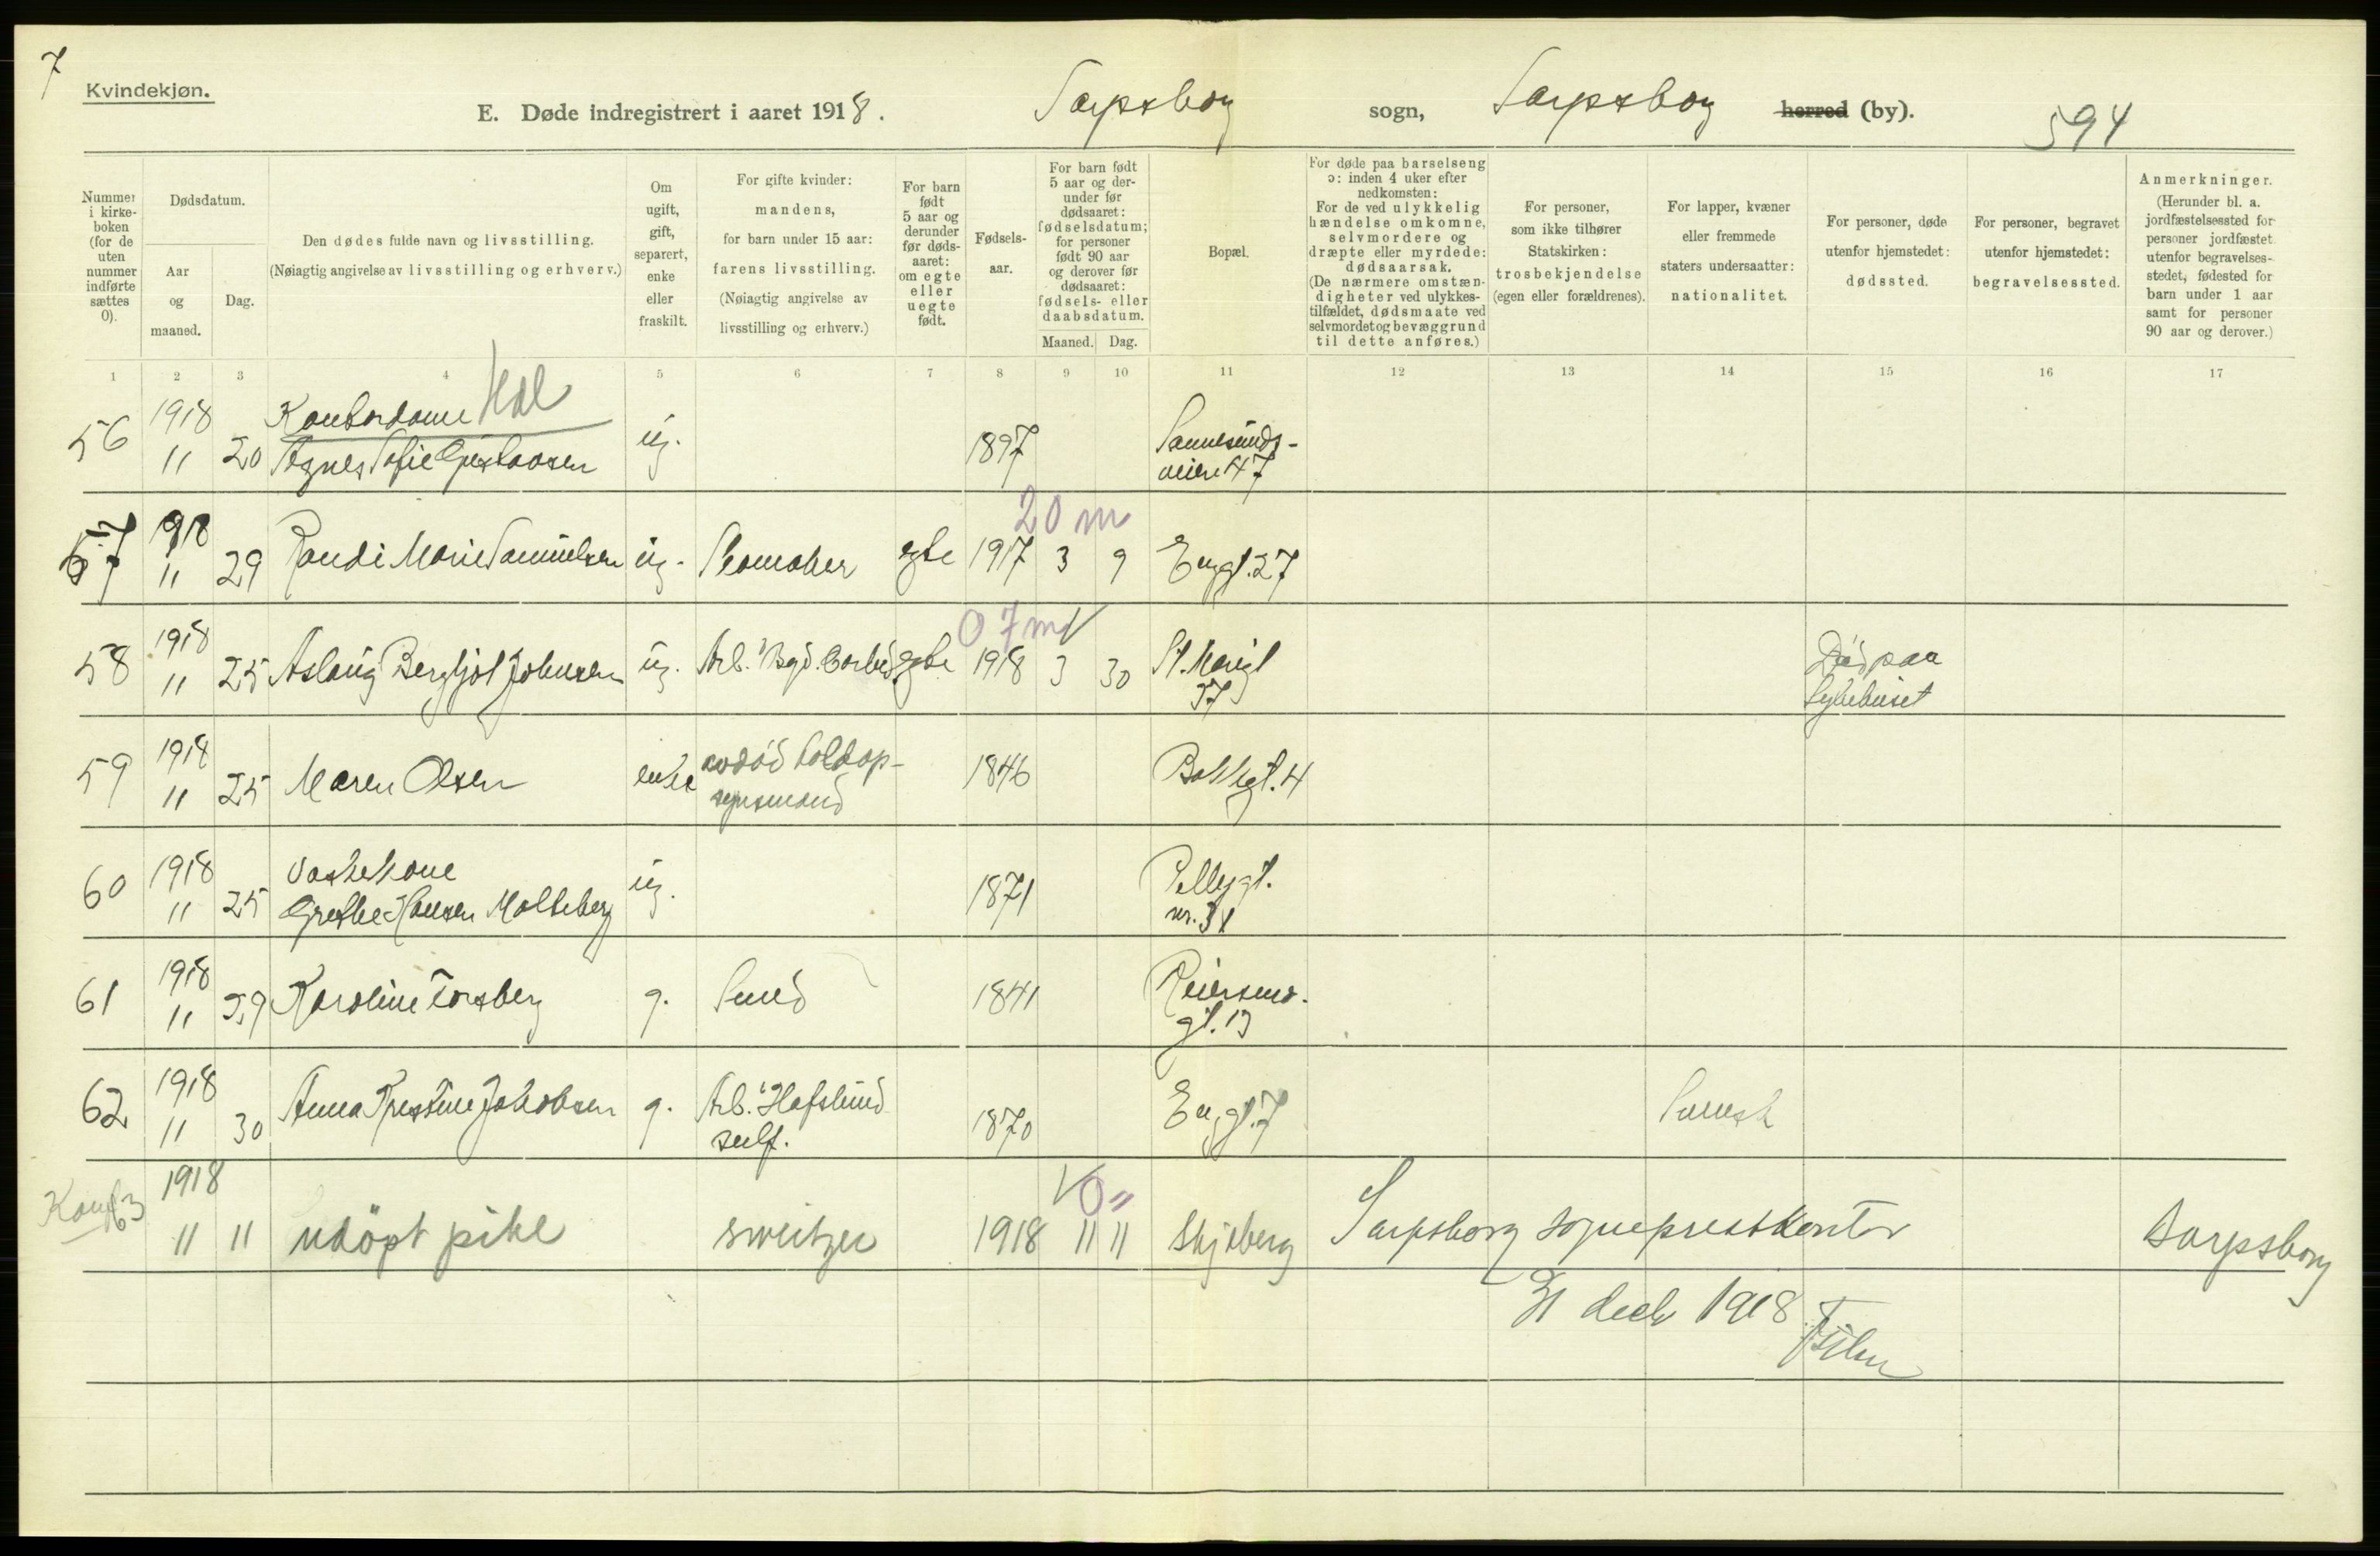 7
Kvindekjøn.
E. Døde indregistrert i aaret 1918. Sarpsborg sogn, Sarpsborg herred (by). 594
Nummer i kirkeboken (for de uten nummer indførte sættes 0).
Dødsdatum.
Aar og maaned.
Dag.
Den dødes fulde navn og livsstilling.
(Nøiagtig angivelse av livsstilling og erhverv.)
Om ugift, gift, separert, enke eller fraskilt.
For gifte kvinder: mandens, for barn under 15 aar: farens livsstilling. (Nøiagtig angivelse av livsstilling og erhverv.)
For barn født 5 aar og derunder før dødsaaret: om egte eller uegte født.
Fødselsaar.
For barn født 5 aar og derunder før dødsaaret: fødselsdatum; for personer født 90 aar og derover før dødsaaret: fødsels- eller daabsdatum.
Maaned. Dag.
Bopæl.
For døde paa barselseng ɔ: inden 4 uker efter nedkomsten:
For de ved ulykkelig hændelse omkomne, selvmordere og dræpte eller myrdede: dødsaarsak.
(De nærmere omstændigheter ved ulykkestilfældet, dødsmaate ved selvmordet og bevæggrund til dette anføres.)
For personer, som ikke tilhører Statskirken: trosbekjendelse (egen eller forældrenes).
For lapper, kvæner eller fremmede staters undersaatter: nationalitet.
For personer, døde utenfor hjemstedet: dødssted.
For personer, begravet utenfor hjemstedet: begravelsessted.
Anmerkninger.
(Herunder bl. a. jordfæstelsessted for personer jordfæstet utenfor begravelsesstedet, fødested for barn under 1 aar samt for personer 90 aar og derover.)
1 2 3 4 5 6 7 8 9 10 11 12 13 14 15 16 17
56 1918 11 20 Kontordame Agnes Sofie Gustavsen ug. 1897 Sannesundsveien 47
20 m
57 1918 11 29 Randi Marie Samuelsen ug. Skomaker egte 1917 3 9 Engt. 27
0 7 m
58 1918 11 25 Aslaug Bergljot Johnsen ug. Arb. egte 1918 3 30 St. Marigt 37 Död paa Sykehuset
59 1918 11 25 Maren Olsen enke avdöd toldopsynsmand 1846 Bakkegt. 4
60 1918 11 25 Vaskekone Grethe Hansen Molteberg ug. 1871 Pellygt. nr. 31
61 1918 11 29 Karoline Torsberg g. Smed 1841 gt. 13
62 1918 11 30 Anna Kristine Jakobsen g. Arb. Hafslund sulf. 1870 Engt. 7 Svensk
0
63 1918 11 11 udöpt pike sweitzer 1918 11 11 Skjeberg Sarpsborg sogneprestkontor Sarpsborg
31 decb 1918